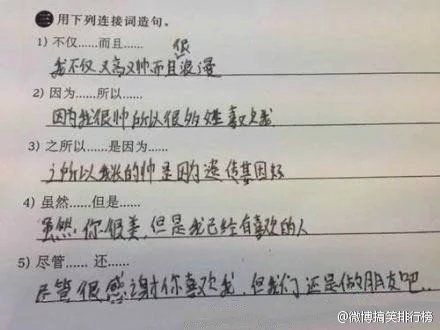 三 用下列连接词造句。
1) 不仅……而且……
我不仅又高又帅而且很浪漫
2) 因为……所以……
因为我很帅所以很多女生喜欢我
3) 之所以……是因为……
之所以我长的帅是因为遗传基因好
4) 虽然……但是……
虽然你很美,但是我已经有喜欢的人
5) 尽管…… 还……
尽管很感谢你喜欢我,但我们还是做朋友吧..
@微博搞笑排行榜